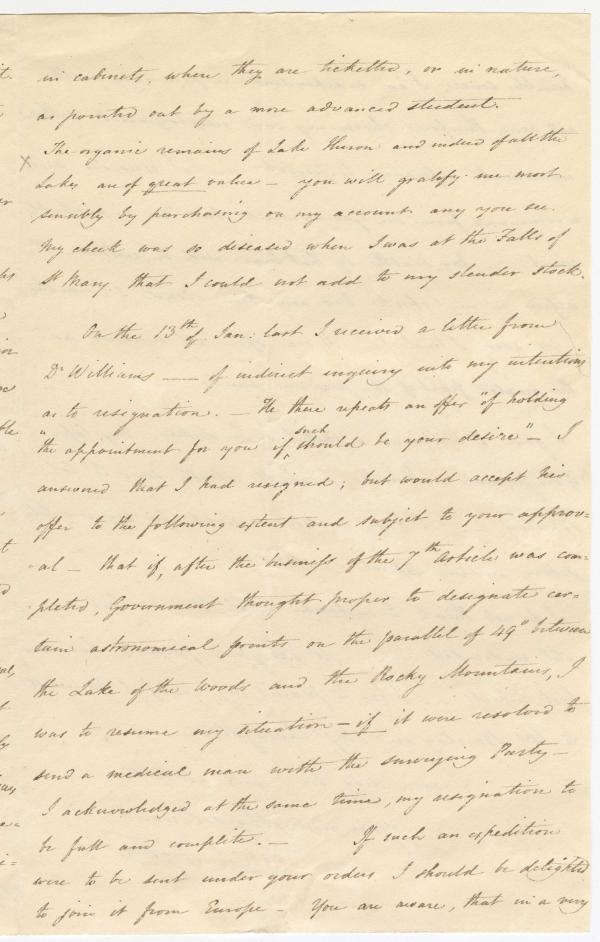 in cabinets, where they are ticketted, or in nature,
as pointed out by a more advanced student.
X The organic remains of Lake Huron and indeed of all the
Lakes are of great value — you will gratify me most
sensibly by purchasing on my account any you see.
My cheek was so diseased when I was at the Falls of
St Mary that I could not add to my slender stock.
On the 13th of Jan: last I received a letter from
Dr Williams — of indirect inquiry into my intentions
as to resignation. — He there repeats an offer "of holding
"the appointment for you if, such should be your desire" — I
answered that I had resigned; but would accept his
offer to the following extent and subject to your approv=
al — that if, after the business of the 7th Article was com=
pleted, Government thought proper to designate cer=
tain astronomical points on the parallel of 49° between
the Lake of the Woods and the Rocky Mountains, I
was to resume my situation — if it were resolved to
send a medical man with the surveying Party —
I acknowledged at the same time, my resignation to
be full and complete. — If such an expedition
were to be sent under your orders I should be delighted
to join it from Europe — You are aware, that in a very